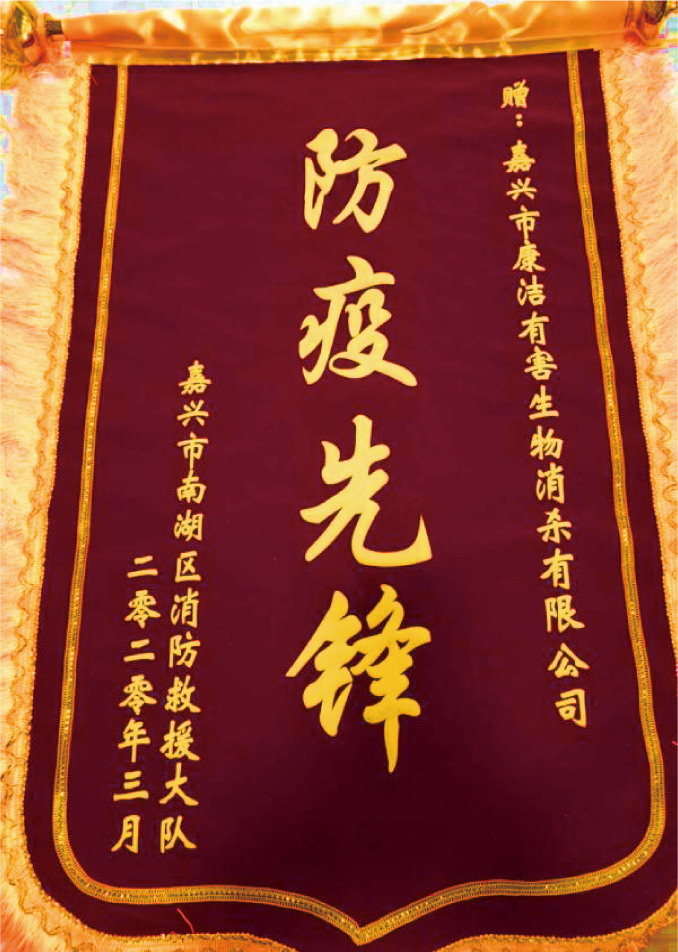 赠：嘉兴市康洁有害生物消杀有限公司
防疫先锋
嘉兴市南湖区消防救援大队
二零二零年三月